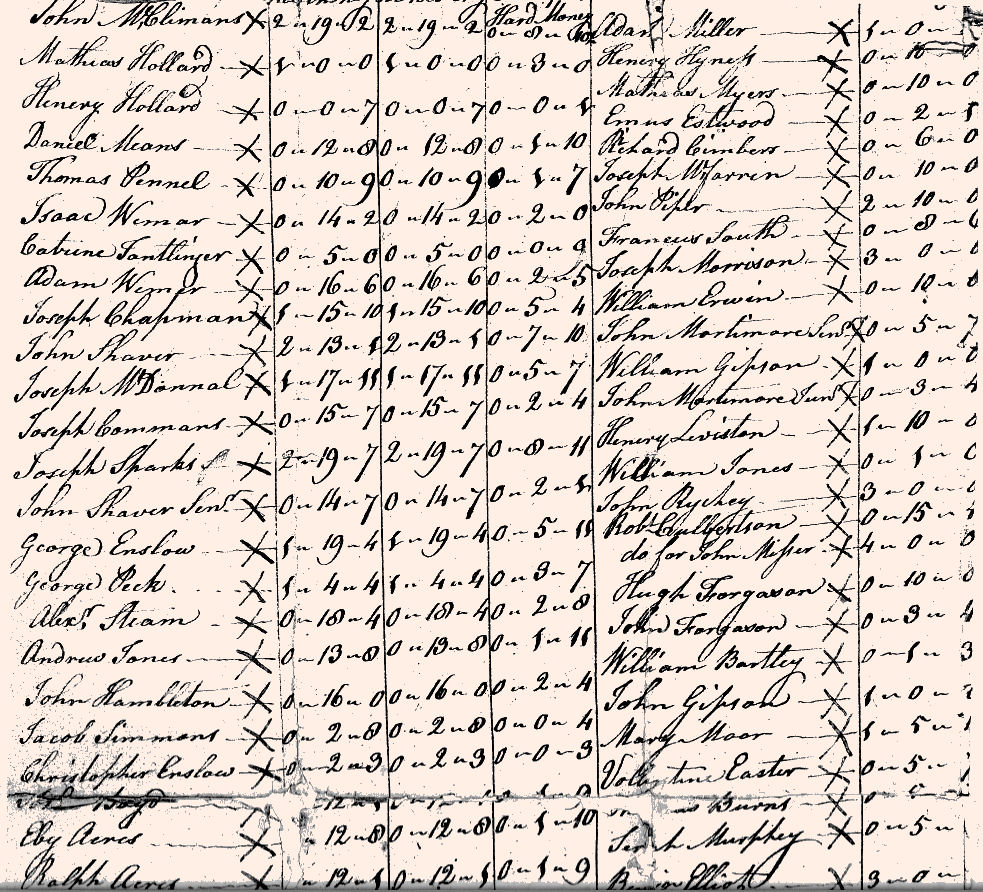 John McClimans X 2 " 19 " 2 2 " 19 " 2 Hard Money 0 " 8 "
Mathias Hollard X 1 " 0 " 0 1 " 0 " 0 0 " 3 " 0
Henery Hollard X 0 " 0 " 7 0 " 0 " 7 0 " 0 " 1
Daniel Means X 0 " 12 " 8 0 " 12 " 8 0 " 1 " 10
Thomas Pennel X 0 " 10 " 9 0 " 10 " 9 0 " 1 " 7
Isaac Wemar X 0 " 14 " 2 0 " 14 " 2 0 " 2 " 0
Catrine Tantlinger X 0 " 5 " 0 0 " 5 " 0 0 " 0 " 9
Adam Wemer X 0 " 16 " 6 0 " 16 " 6 0 " 2 " 5
Joseph Chapman X 1 " 15 " 10 1 " 15 " 10 0 " 5 " 4
John Shaver X 2 " 13 " 1 2 " 13 " 1 0 " 7 " 10
Joseph McDannal X 1 " 17 " 11 1 " 17 " 11 0 " 5 " 7
Joseph Commans X 0 " 15 " 7 0 " 15 " 7 0 " 2 " 4
Joseph Sparks X 2 " 19 " 7 2 " 19 " 7 0 " 8 " 11
John Shaver Senr X 0 " 14 " 7 0 " 14 " 7 0 " 2 " 1
George Enslow X 1 " 19 " 4 1 " 19 " 4 0 " 5 " 11
George Peck X 1 " 4 " 4 1 " 4 " 4 0 " 3 " 7
Alexr Steam X 0 " 18 " 4 0 " 18 " 4 0 " 2 " 8
Andrew Jones X 0 " 13 " 8 0 " 13 " 8 0 " 1 " 11
John Hambleton X 0 " 16 " 0 0 " 16 " 0 0 " 2 " 4
Jacob Simmons X 0 " 2 " 8 0 " 2 " 8 0 " 0 " 4
Christopher Enslow X 0 " 2 " 3 0 " 2 " 3 0 " 0 " 3
Boyd
Eby Acres X " 12 " 8 0 " 12 " 8 0 " 1 " 10
Ralph Acres X " 12 " 1 0 " 12 " 1 0 " 1 " 9
Adam Miller X 1 " 0 "
Henery Hyness X 0 " 10
Mathias Myers 0 " 10 " 0
Emus Estwood X 0 " 2 " 1
Richard Cimbers X 0 " 6 " 0
Joseph Warren X 0 " 10 " 0
John Piper X 2 " 10 " 0
Francis South X 0 " 8 " 6
Joseph Morrison X 3 " 0 " 0
William Erwin X 0 " 10 " 0
John Mortimore Senr X 0 " 5 " 7
William Gipson X 1 " 0 " 0
John Mortimore Junr X 0 " 3 " 4
Henery Leviston X 1 " 10 " 0
William Jones X 0 " 1 " 0
John Rychey X 3 " 0 " 0
Robt Culbertson X 0 " 15 "
do for John Misser X 4 " 0 " 0
Hugh Forgason X 0 " 10 " 0
John Forgason X 0 " 3 " 4
William Bartley X 0 " 1 " 3
John Gipson X 1 " 0 "
Mary Moor X 1 " 5 "
Vollentine Easter X 0 " 5 "
Burns X
Murphey X 0 " 5 "
Elliott X 3 " 0 "